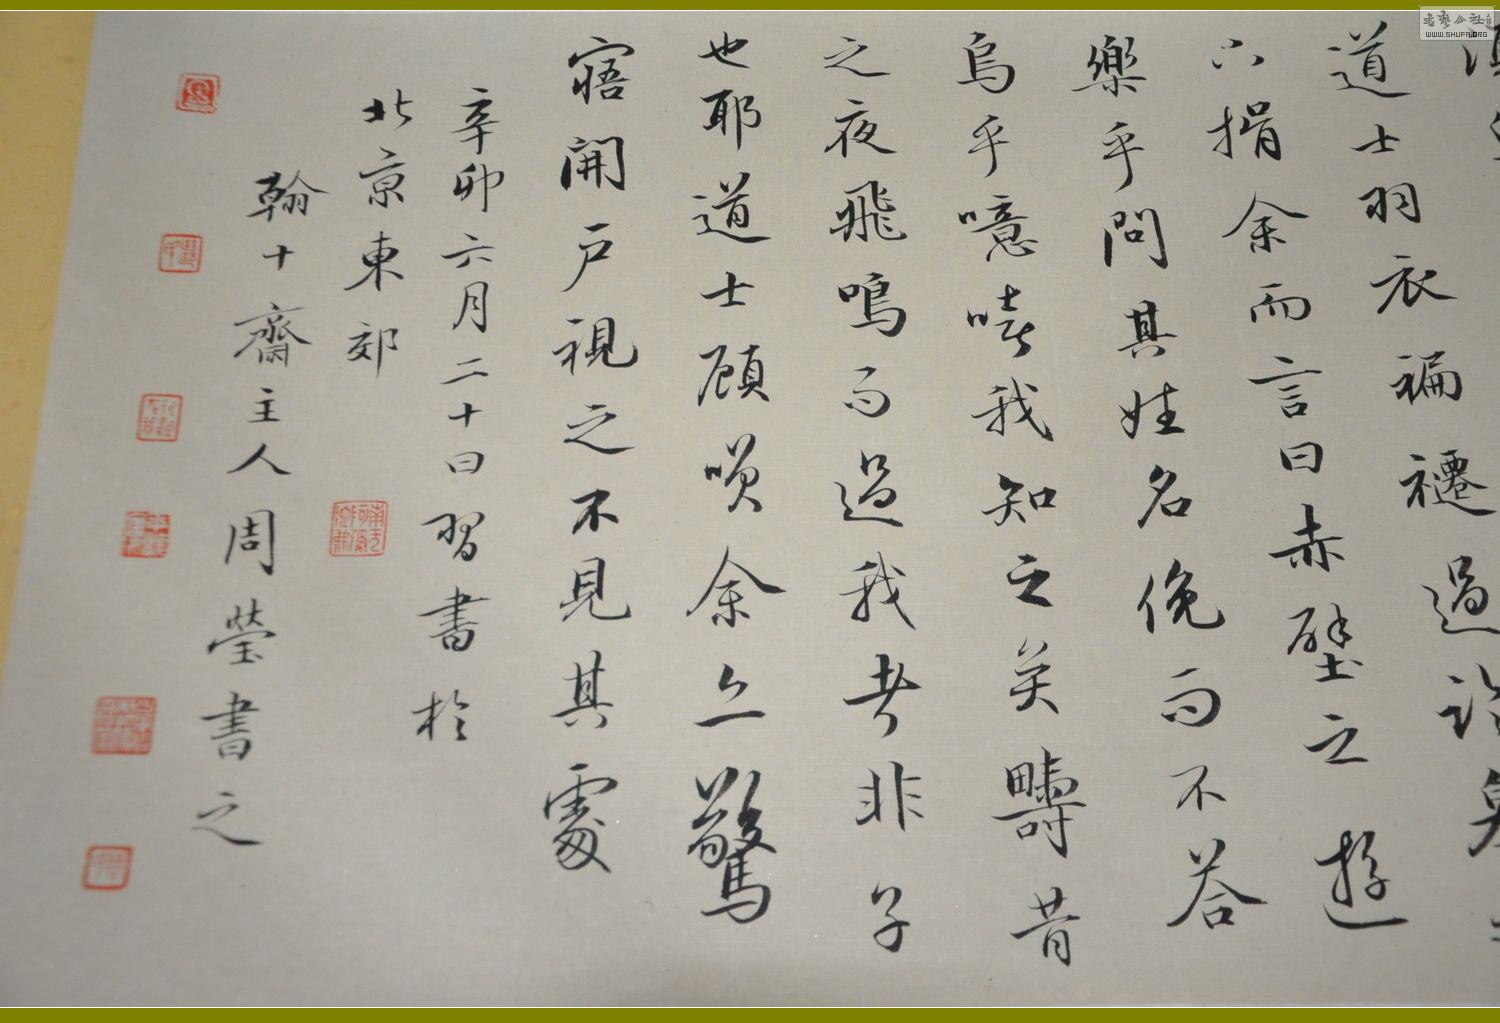 道士羽衣褊襳過詣臯
下揖余而言曰赤壁之遊
樂乎問其姓名俛而不答
烏乎噫嘻我知之矣疇昔
之夜飛鳴而過我者非子
也耶道士顧唉余亦驚
寤開戶視之不見其處
辛卯六月二十日習書於
北京東郊
翰十齋主人周瑩書之
書藝公社
WWW.SHUFA.ORG